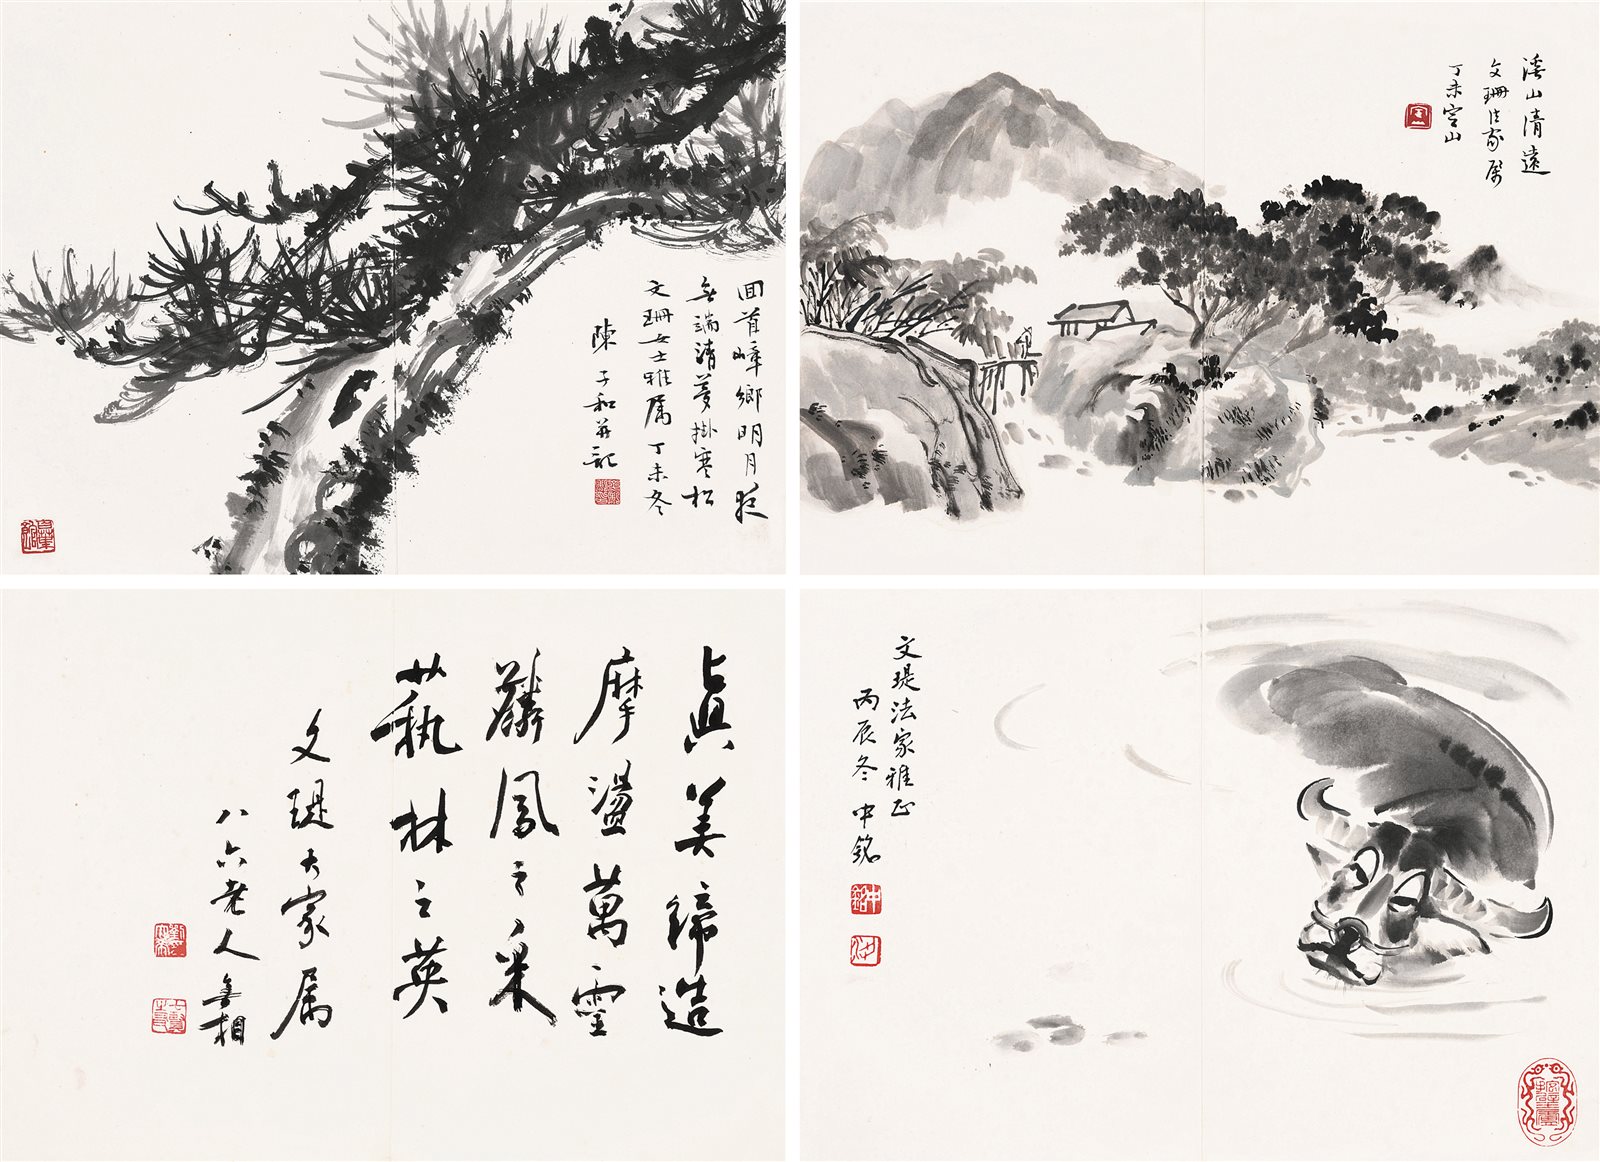 回首嶂鄉明月夜
無端清夢掛寒松
文珊女士雅屬丁未冬
陳子和並記
溪山清遠
文珊法家屬
丁未定山
真美締造
摩盪萬靈
麟鳳之采
藝林之英
文瑅大家屬
八六老人無相
文瑅法家雅正
丙辰冬中銘